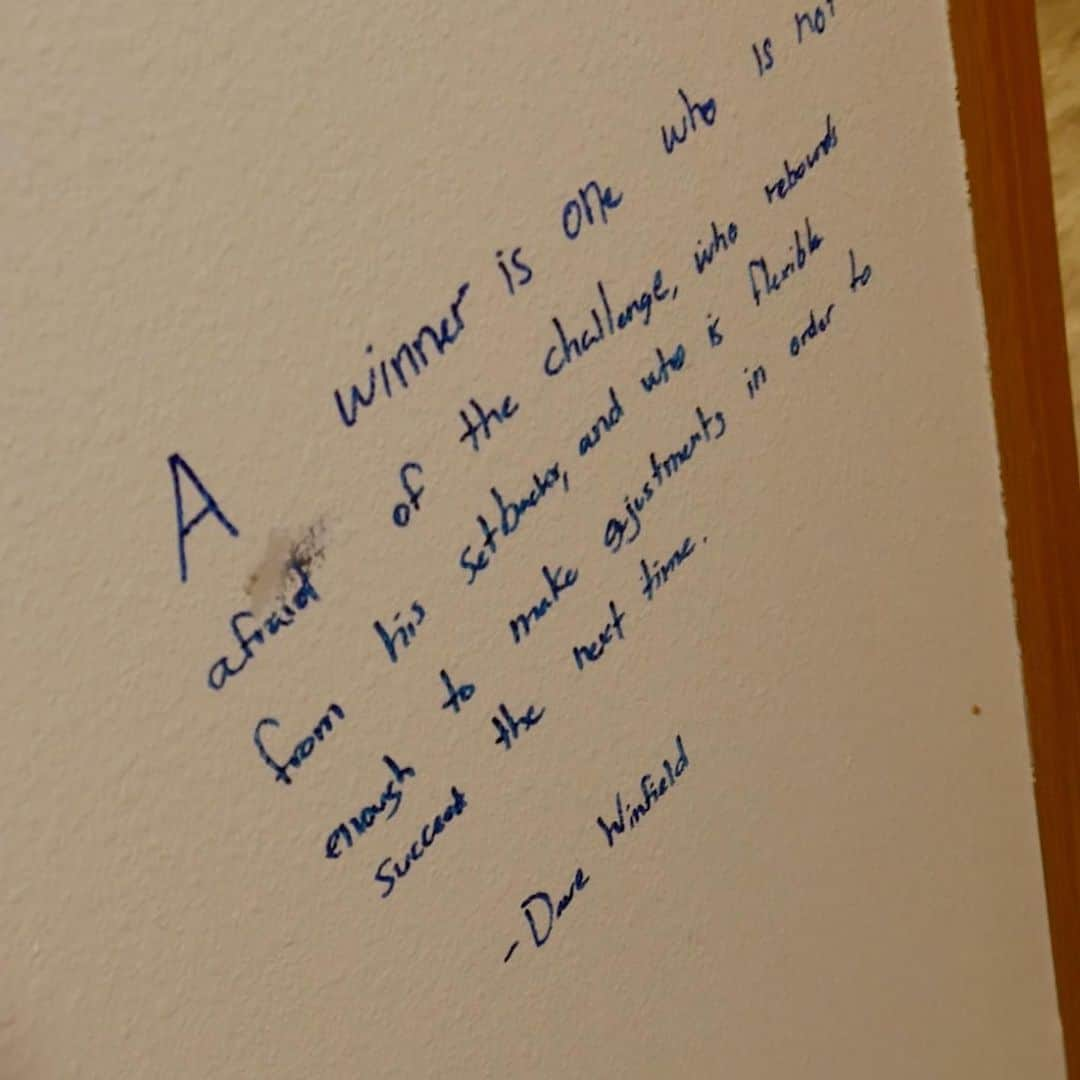 A winner is one who is not
afraid of the challenge, who rebounds
from his setbacks, and who is flexible
enough to make adjustments in order to
succeed the next time.
-Dave Winfield